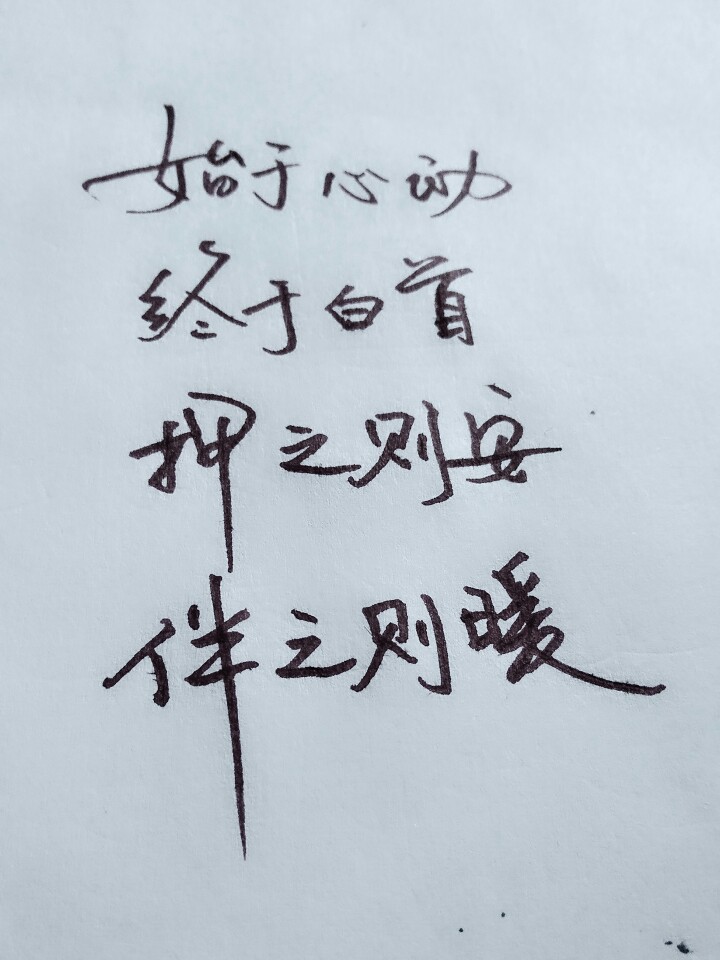 始于心动
终于白首
押之则安
伴之则暖